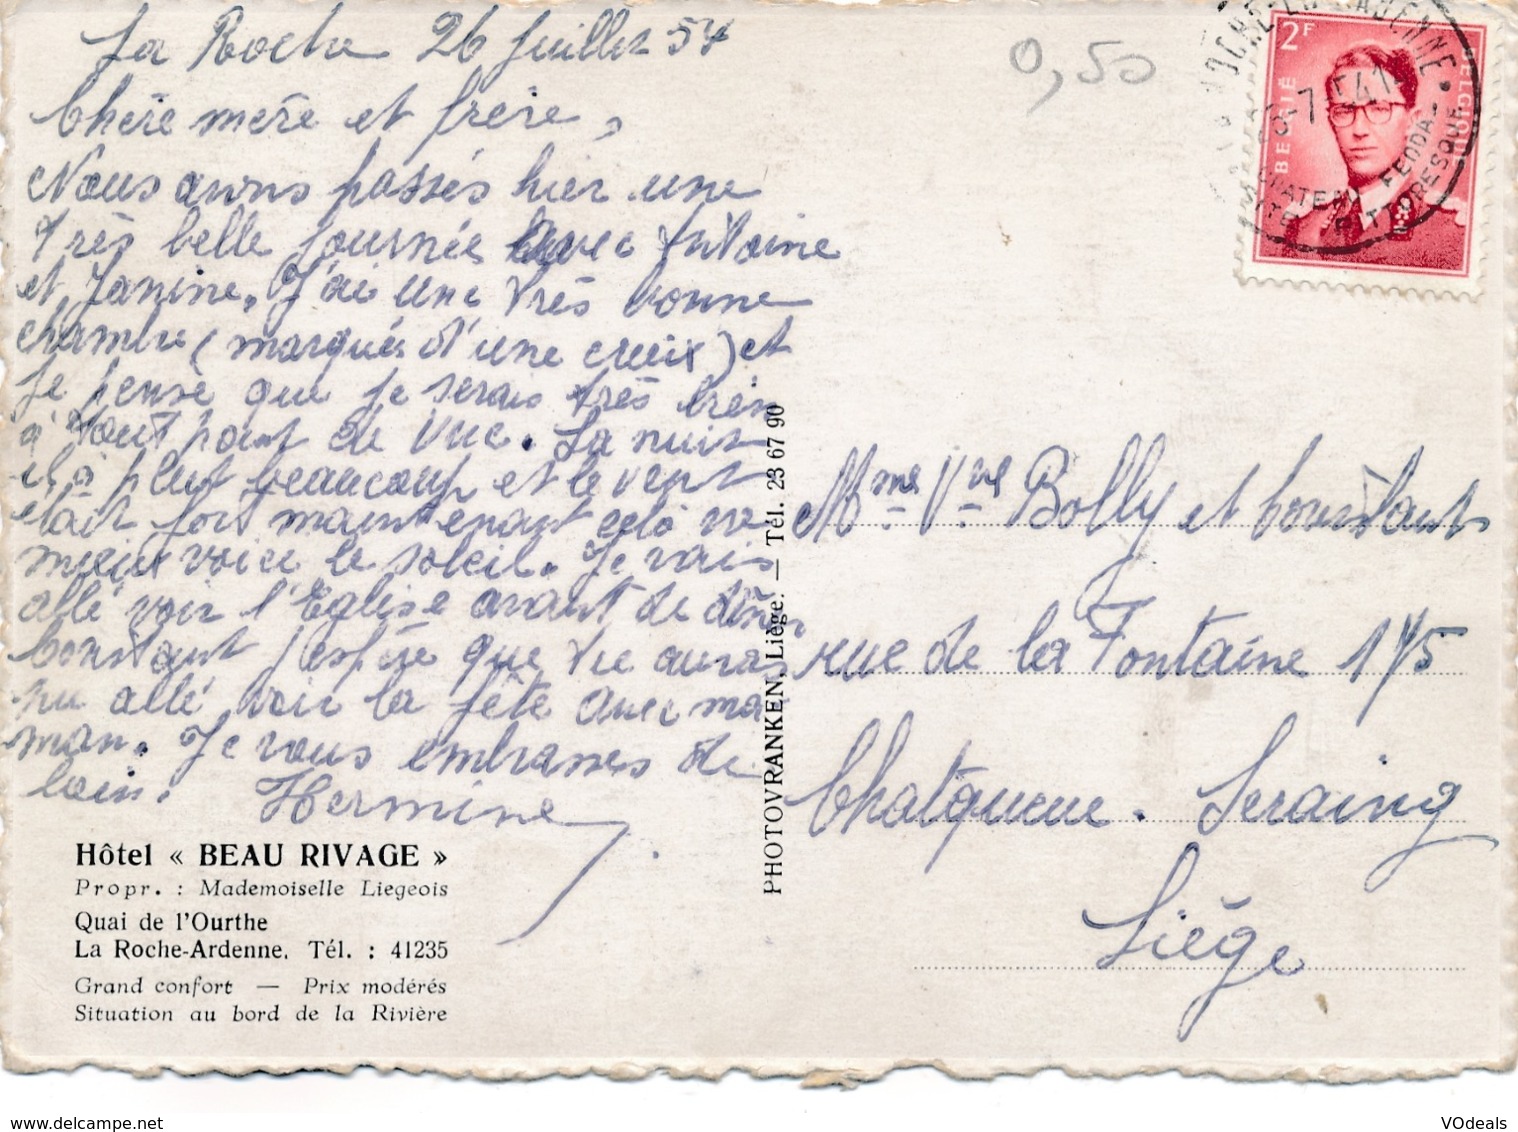 La Roche 26 juillet 54
Chère mère et frère,
Nous avons passés hier une
très belle journée avec Antoine
et Janine. J'ai une très bonne
chambre (marqués d'une croix) et
je pense que je serais très bien
à tout point de vue. La nuit
il à pleut beaucoup et le vent
était fort maintenant celà va
mieux voici le soleil. Je vais
allé voir l'Eglise avant de dîner
Constant j'espère que tu auras
pu allé voir la fête avec ma-
man. Je vous embrasses de
loin.
Hermine
Hôtel « BEAU RIVAGE »
Propr. : Mademoiselle Liegeois
Quai de l'Ourthe
La Roche-Ardenne. Tél. : 41235
Grand confort — Prix modérés
Situation au bord de la Rivière
PHOTO VRANKEN, Liège. — Tél. 23 67 90
0,50
2F
BELGIË
BELGIQUE
CHATEAU FEODAL
SITE PITTORESQUE
Mme Vve Bolly et Constant
rue de la Fontaine 175
Chatqueue. Seraing
Liège
VOdeals
delcampe.net